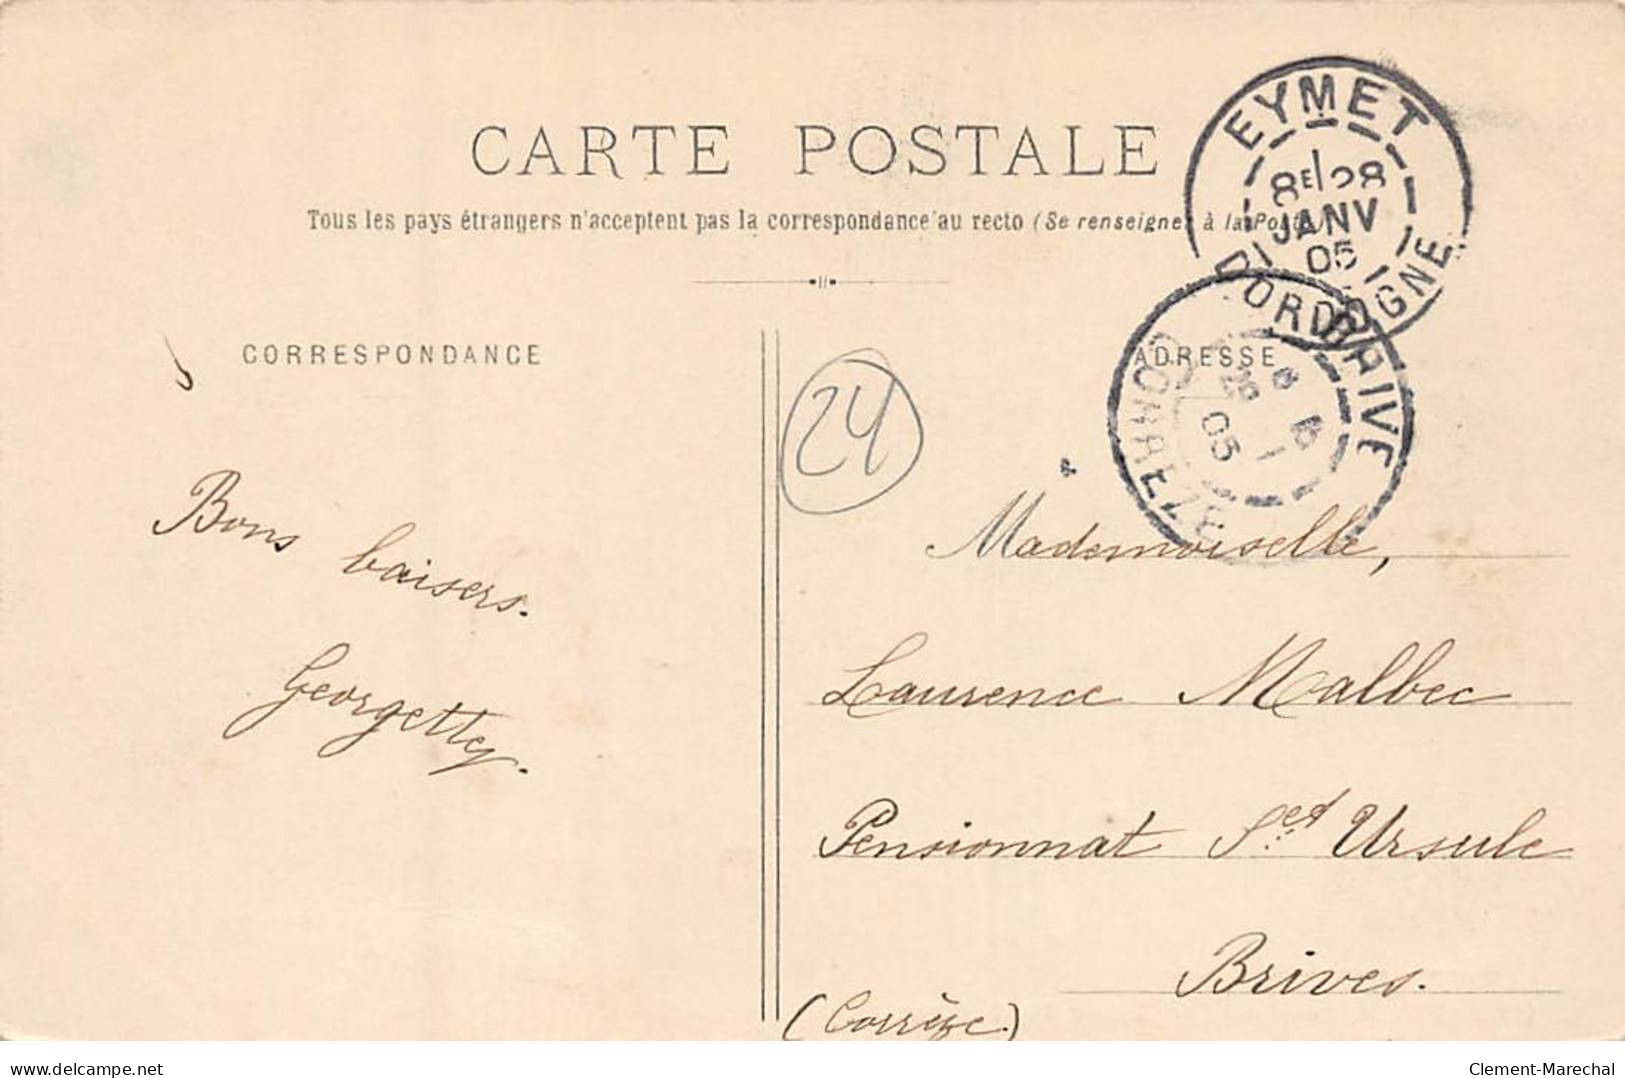 CARTE POSTALE
Tous les pays étrangers n'acceptent pas la correspondance au recto (Se renseigner à la Poste)
EYMET
8E 28
JANV
05
DORDOGNE
CORRESPONDANCE
ADRESSE
BRIVE
05
CORREZE
24
Bons baisers.
Georgette.
Mademoiselle,
Laurence Malbec
Pensionnat Ste Ursule
Brives.
(Corrèze)
delcampe.net
Clement-Marechal